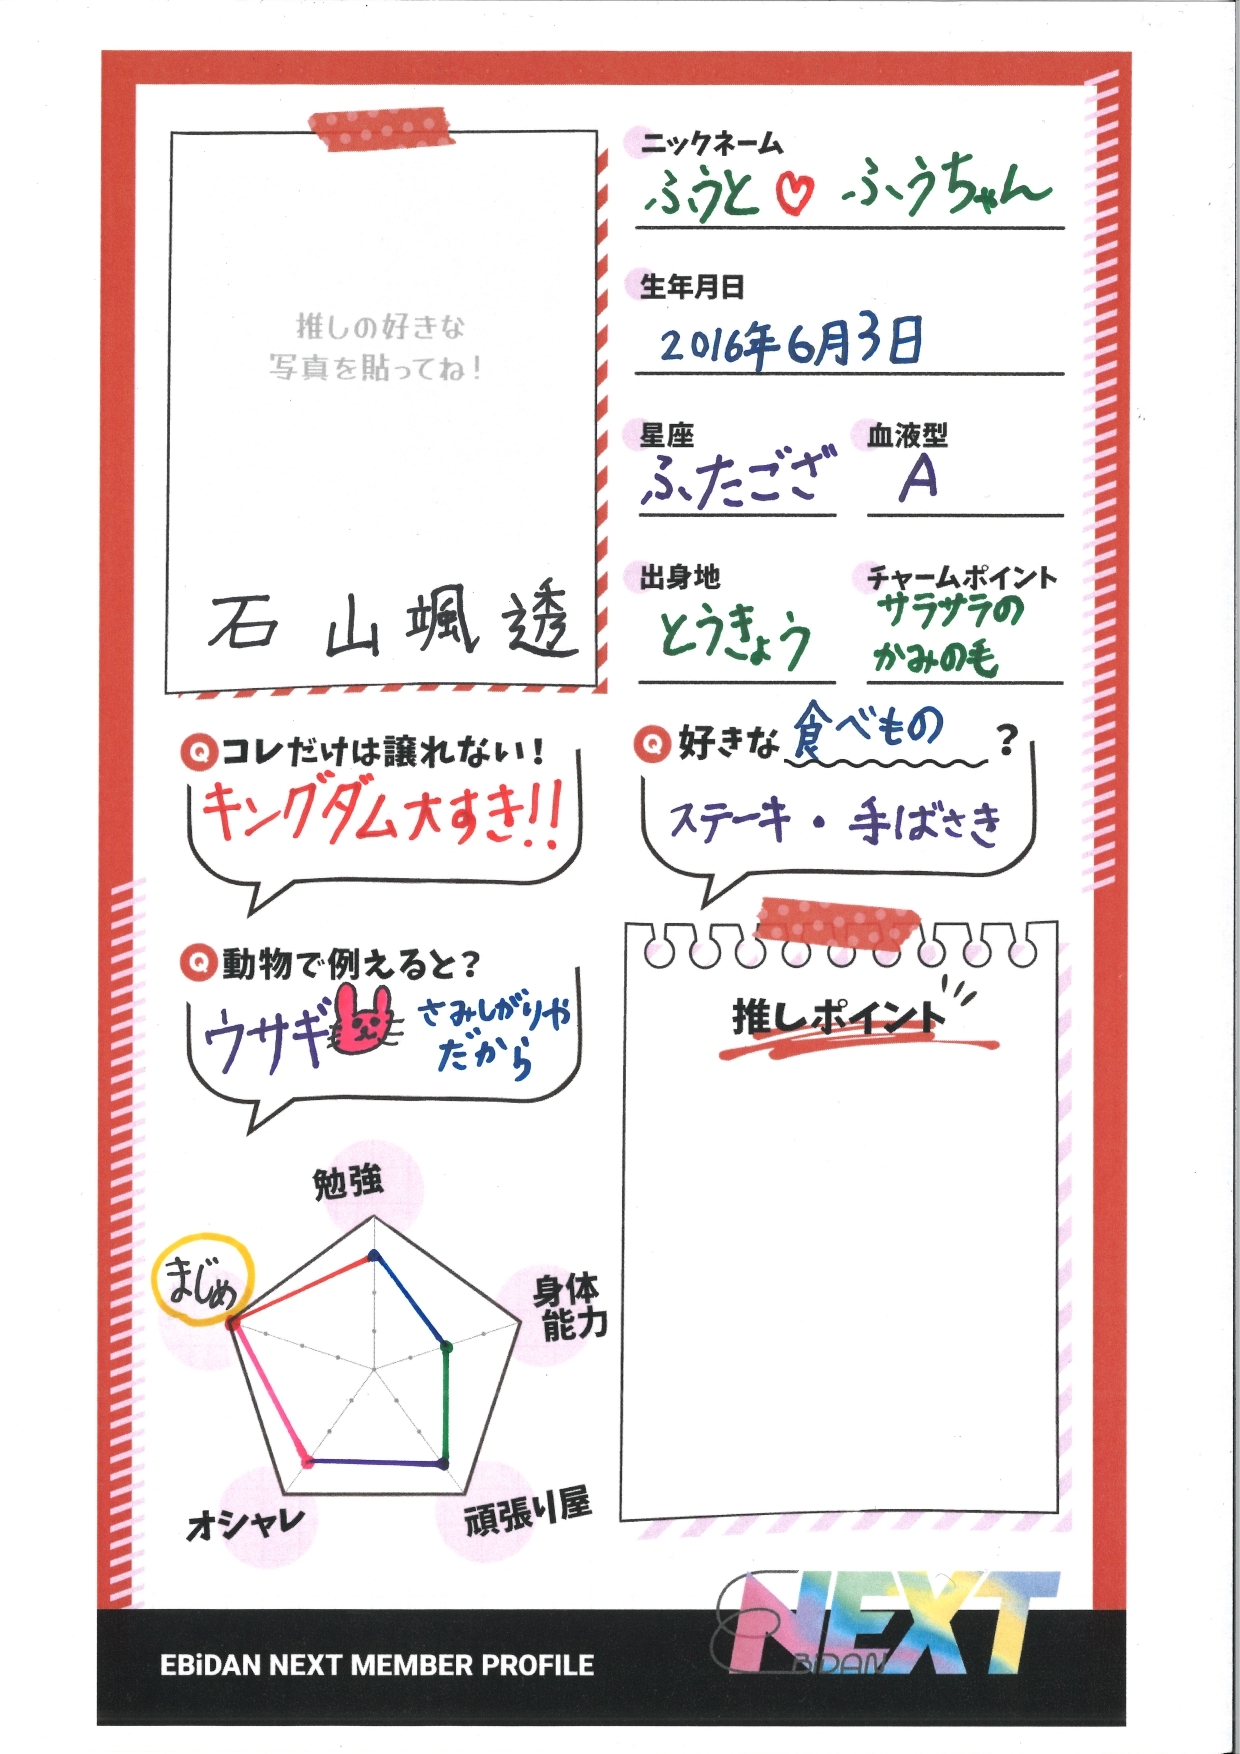 推しの好きな
写真を貼ってね！
石山颯透
ニックネーム
ふうと♡ ふうちゃん
生年月日
2016年6月3日
星座
ふたござ
血液型
A
出身地
とうきょう
チャームポイント
サラサラの
かみの毛
Qコレだけは譲れない！
キングダム大すき!!
Q好きな食べもの？
ステーキ・手ばさき
Q動物で例えると？
ウサギ
さみしがりや
だから
推しポイント
勉強
まじめ
身体
能力
オシャレ
頑張り屋
EBiDAN NEXT MEMBER PROFILE
EBiDAN NEXT